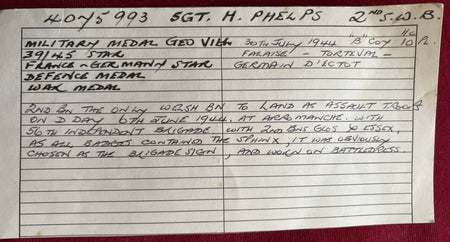 4045993 SGT. H. PHELPS 2ND S.W.B.
MILITARY MEDAL GEO VIth 30TH JULY 1944 "B" COY 10 PL.
39/45 STAR FALAISE - TORTEVAL -
FRANCE-GERMANY STAR GERMAIN D'ECTOT
DEFENCE MEDAL
WAR MEDAL
2ND BN THE ONLY WELSH BN TO LAND AS ASSAULT TROOPS
ON D DAY 6TH JUNE 1944. AT ARROMANCHE. WITH
56TH INDEPENDENT BRIGADE WITH 2ND BNS GLOS & ESSEX,
AS ALL BADGES CONTAINED THE SPHINX, IT WAS OBVIOUSLY
CHOSEN AS THE BRIGADE SIGN, AND WORN ON BATTLEDRESS.